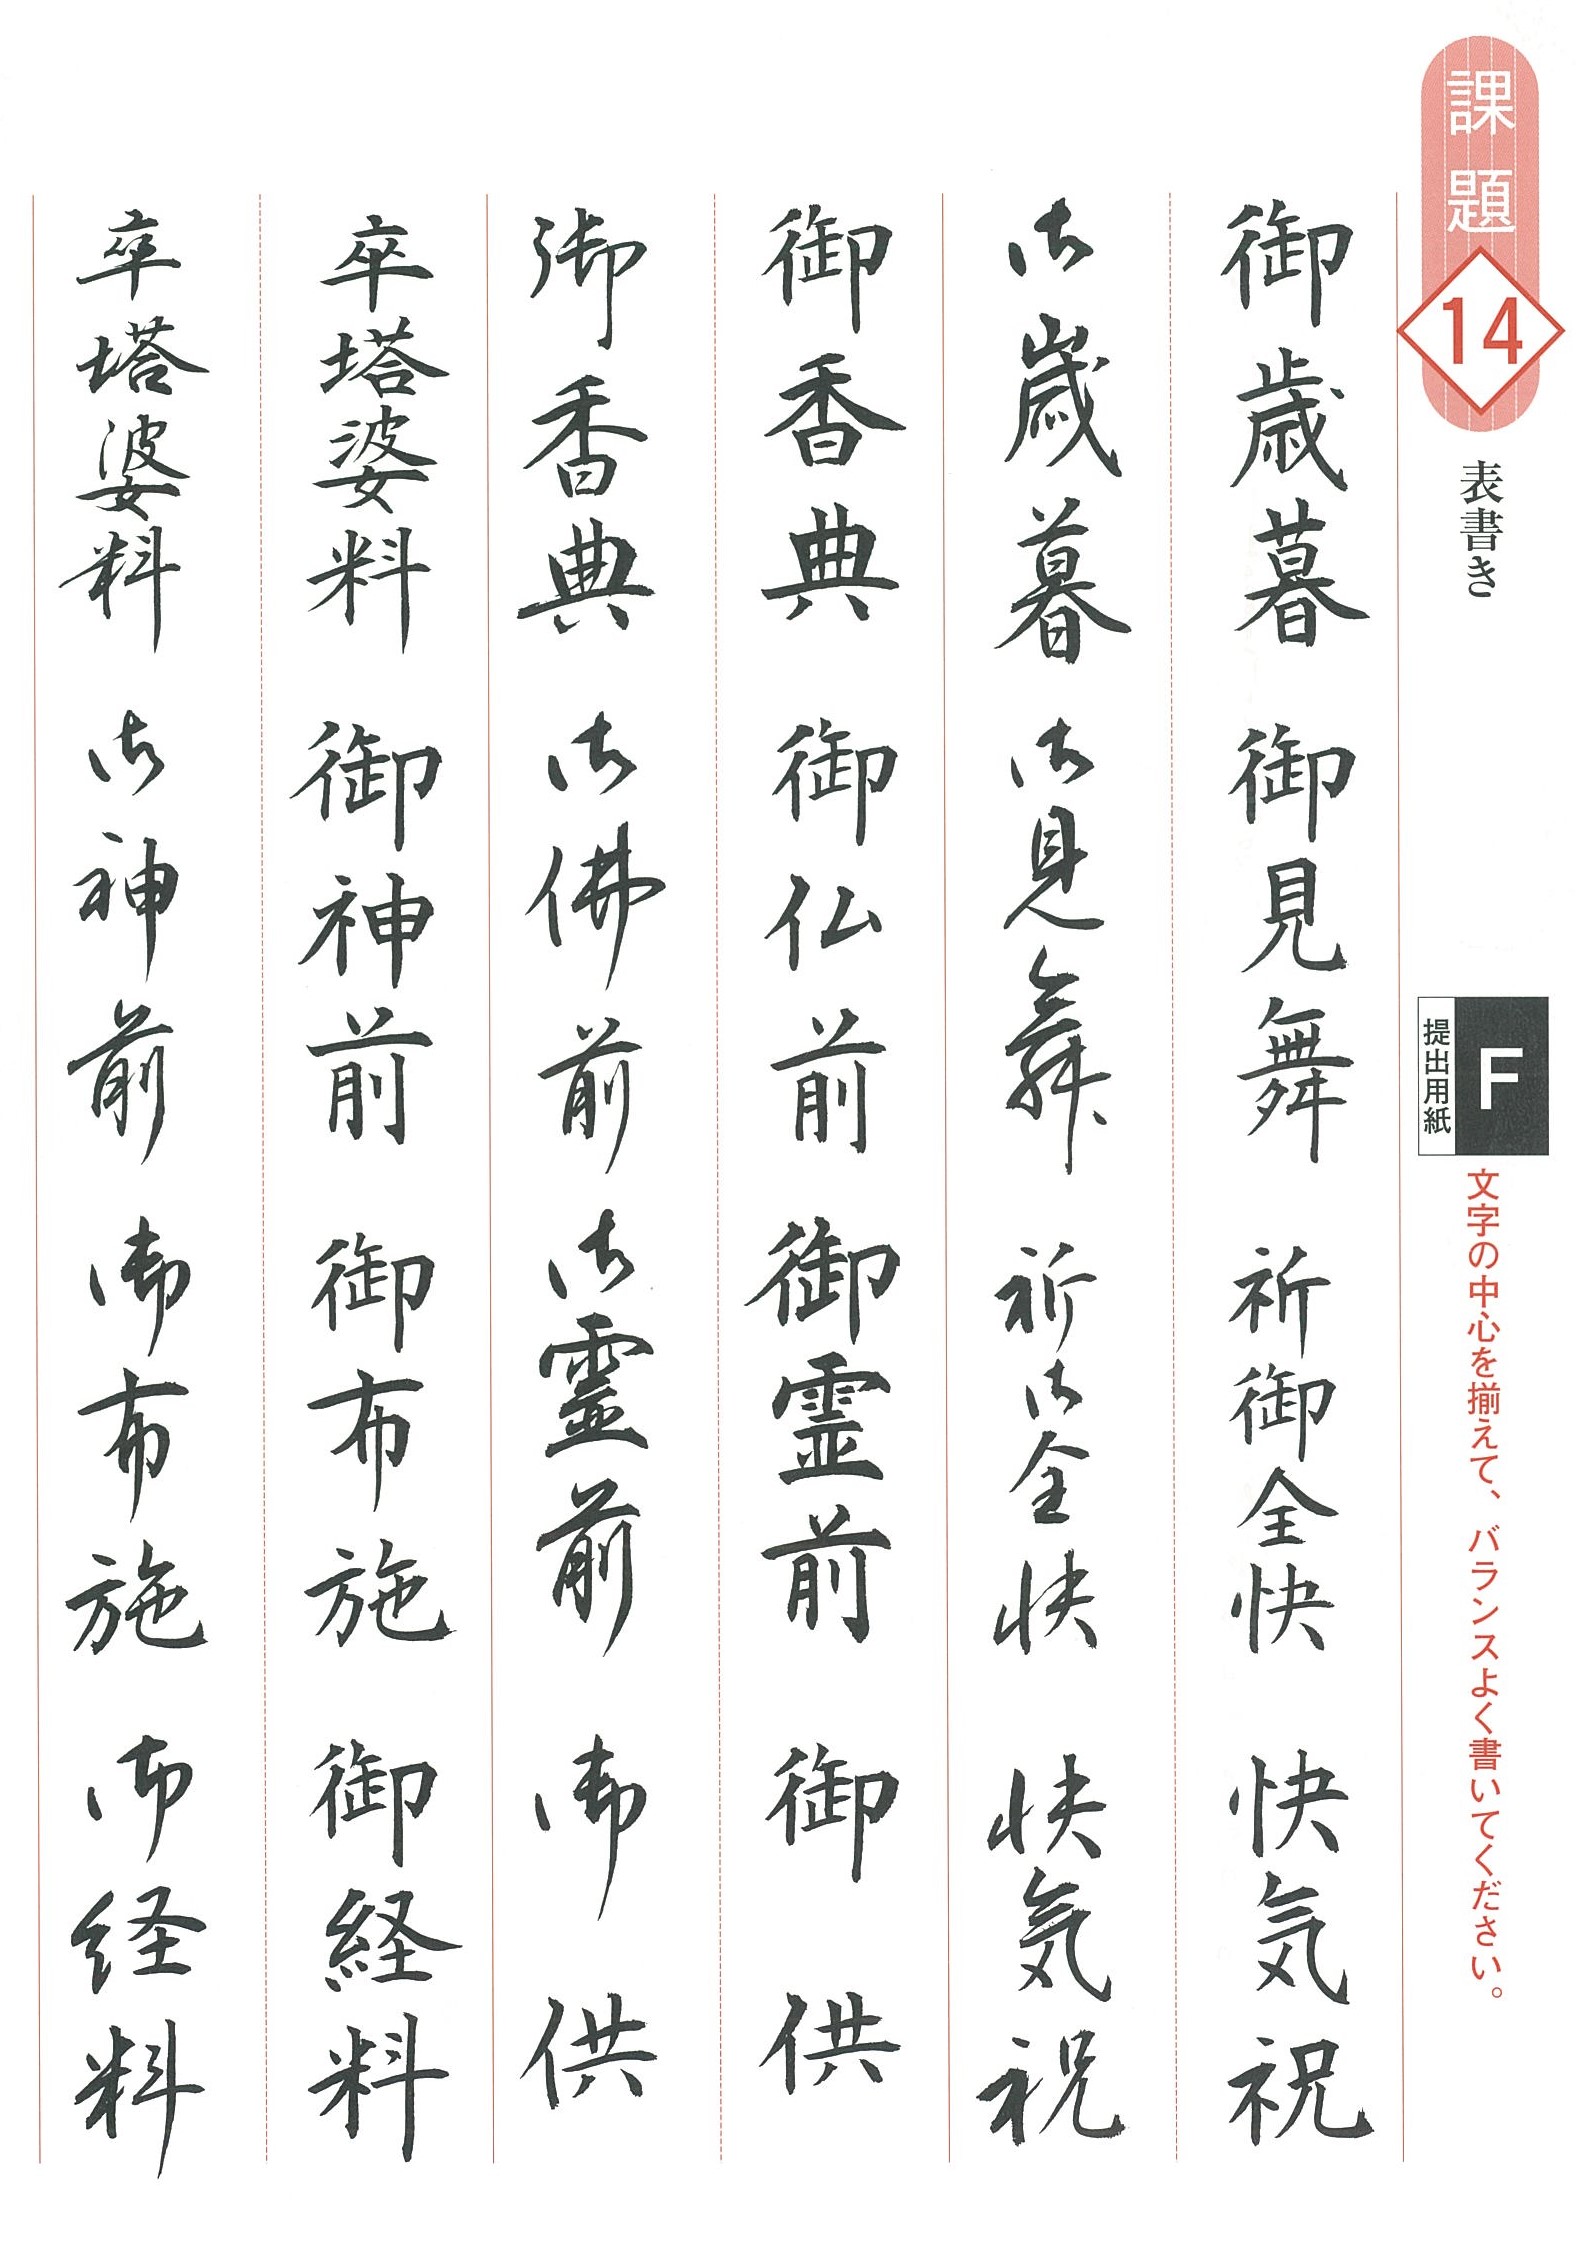 課題
14
表書き
F
提出用紙
文字の中心を揃えて、バランスよく書いてください。
御歳暮 御見舞 祈御全快 快気祝
御歳暮 御見舞 祈御全快 快気祝
御香典 御仏前 御霊前 御供
御香典 御佛前 御霊前 御供
卒塔婆料 御神前 御布施 御経料
卒塔婆料 御神前 御布施 御経料